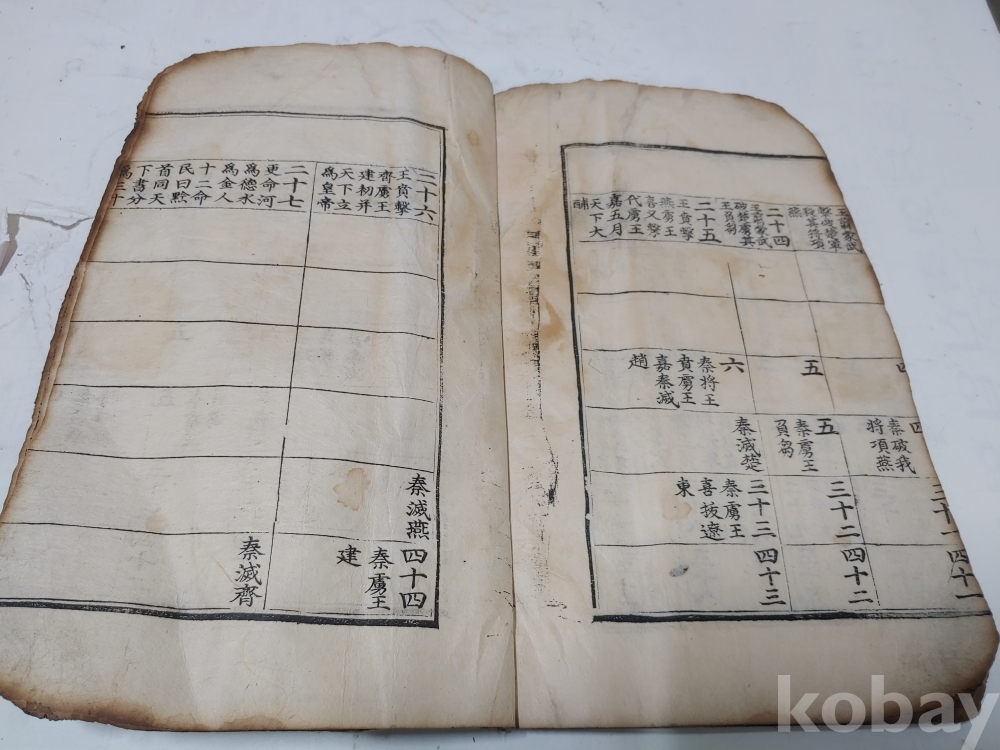 王翦蒙武
擊破楚軍
殺其將項
燕
二十四
王翦蒙武
破楚虜其
王負芻
二十五
王賁擊
燕虜王
喜又擊
代虜王
嘉五月
天下大
酺
五
六
秦將王
賁虜王
嘉秦滅
趙
四
秦破我
將項燕
五
秦虜王
負芻
秦滅楚
三十二
三十三
秦虜王
喜拔遼
東
四十一
四十二
四十三
二十六
王賁擊
齊虜王
建初并
天下立
爲皇帝
二十七
更命河
爲德水
爲金人
十二命
民曰黔
首同天
下書分
爲三十
秦滅燕
四十四
秦虜王
建
秦滅齊
kobay